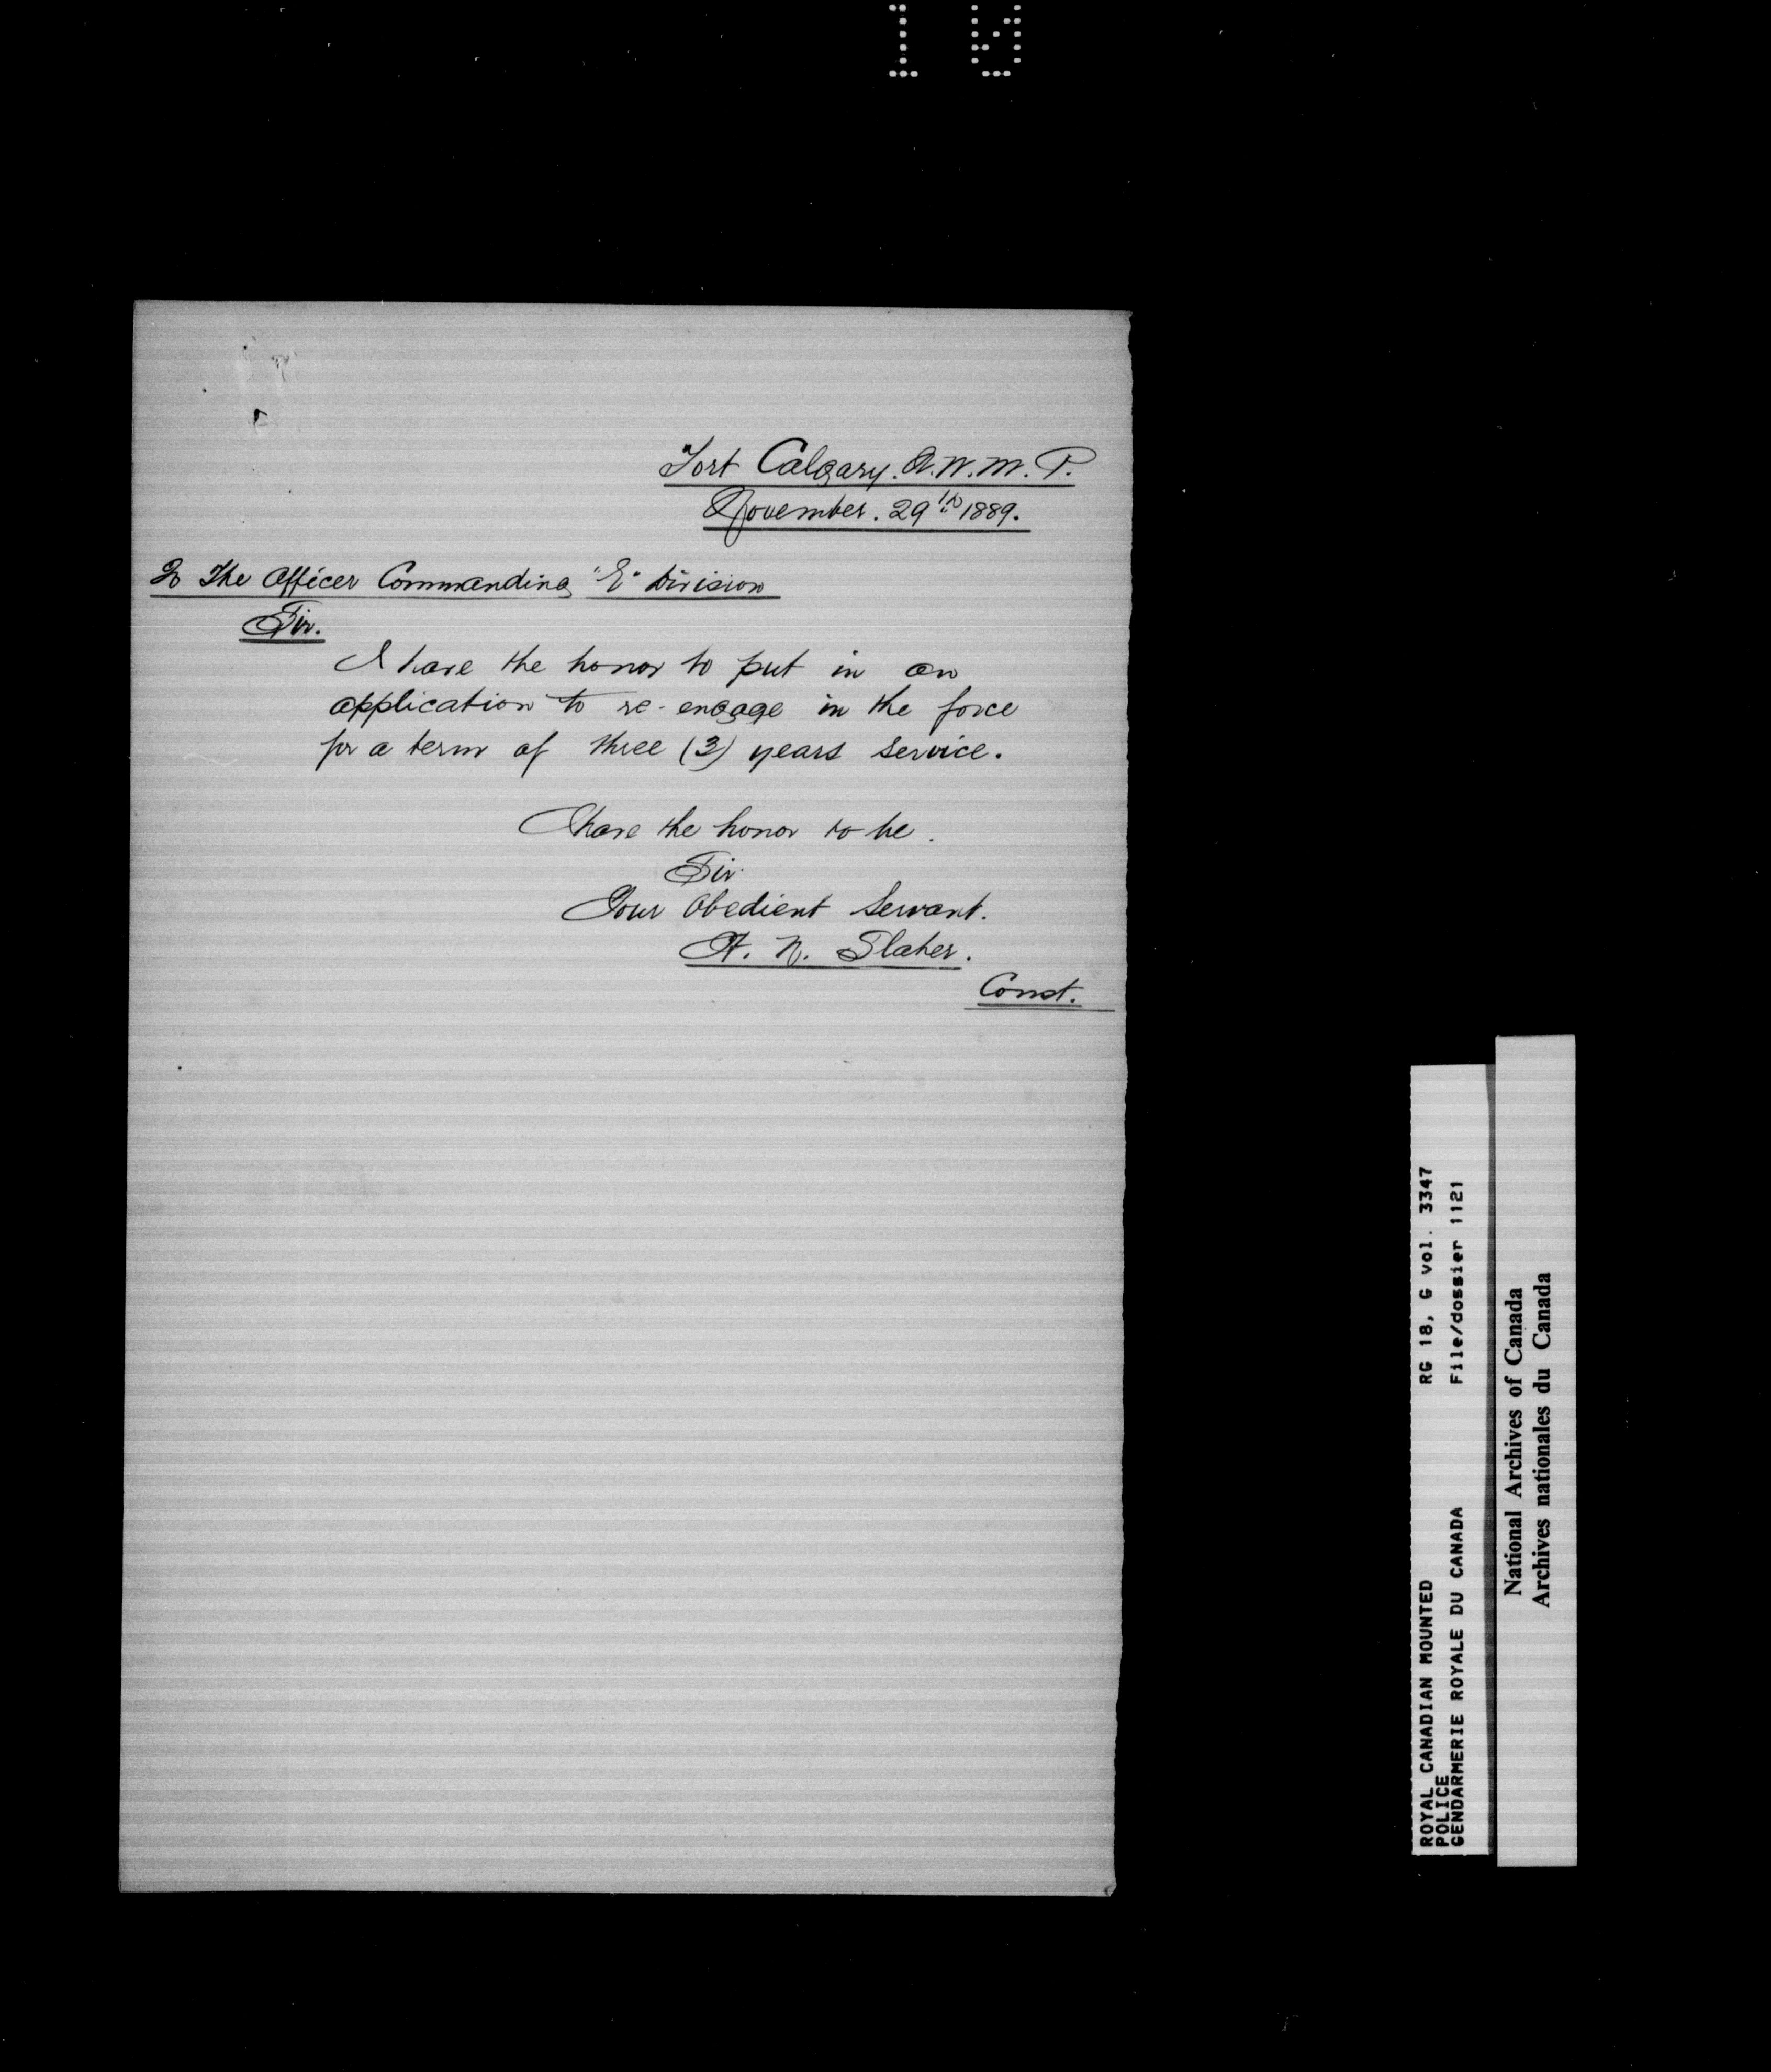 Fort Calgary. N.W.M.P.
November. 29th 1889.
To The Officer Commanding "E" Division
Sir.
I have the honor to put in an
application to re-engage in the force
for a term of three (3) years service.
I have the honor to be.
Sir
Your Obedient Servant.
N. Slater.
Const.
ROYAL CANADIAN MOUNTED RG 18, G vol. 3347
POLICE
GENDARMERIE ROYALE DU CANADA File/dossier 1121
National Archives of Canada
Archives nationales du Canada